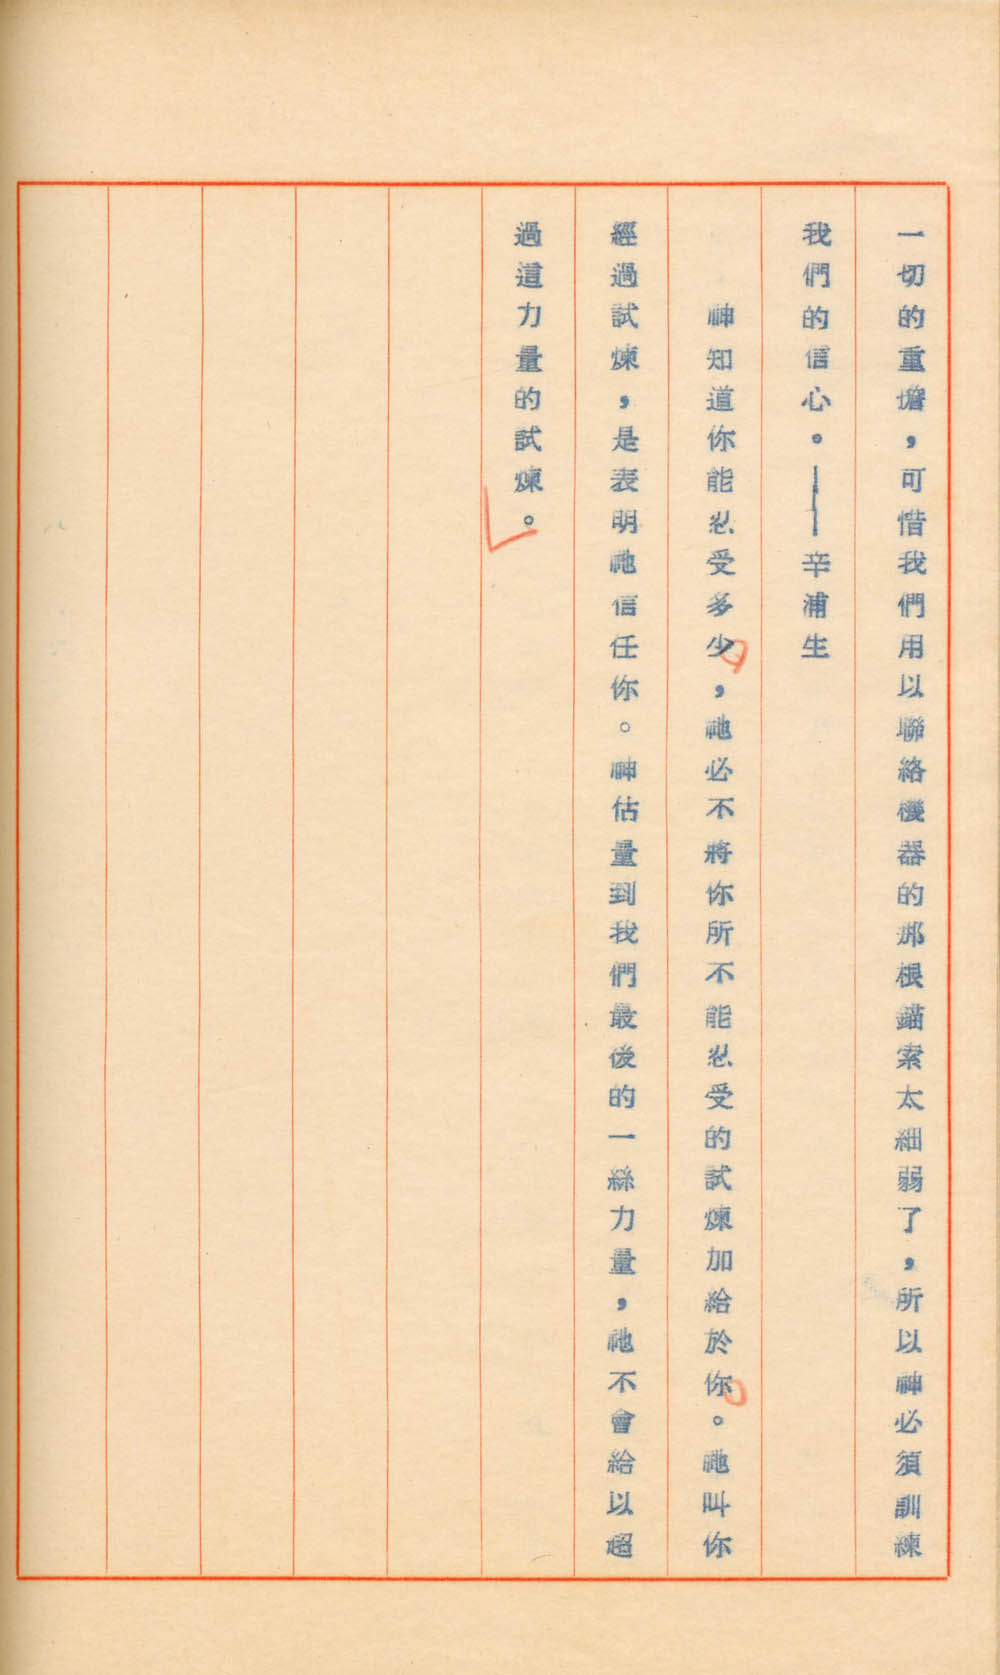 一切的重擔，可惜我們用以聯絡機器的那根錨索太細弱了，所以神必須訓練
我們的信心。——辛浦生
神知道你能忍受多少，祂必不將你所不能忍受的試煉加給於你。祂叫你
經過試煉，是表明祂信任你。神估量到我們最後的一絲力量，祂不會給以超
過這力量的試煉。